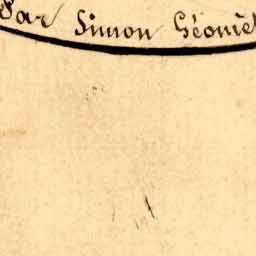 Par Simon Géomèt